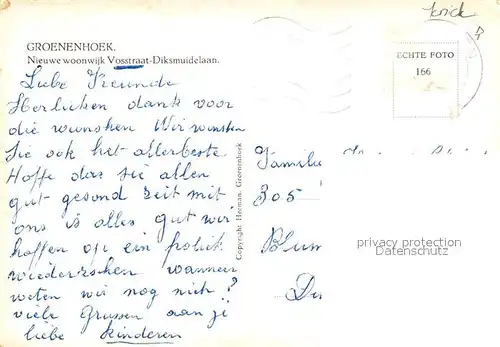 krick
GROENENHOEK.
Nieuwe woonwijk Vosstraat-Diksmuidelaan.
ECHTE FOTO
166
Liebe Freunde
Herlichen dank voor
die wunshen Wir wunshen
Sie ook het allerbeste
Hoffe das sie allen
gut gesond zeit mit
ons is alles gut wir
hoffen op ein frohlik
wiedersehen wanneer
weten wir nog nich?
viele Grussen aan je
liebe kinderen
Copyright Herman, Groenenhoek
Familie
305
Blum
privacy protection
Datenschutz